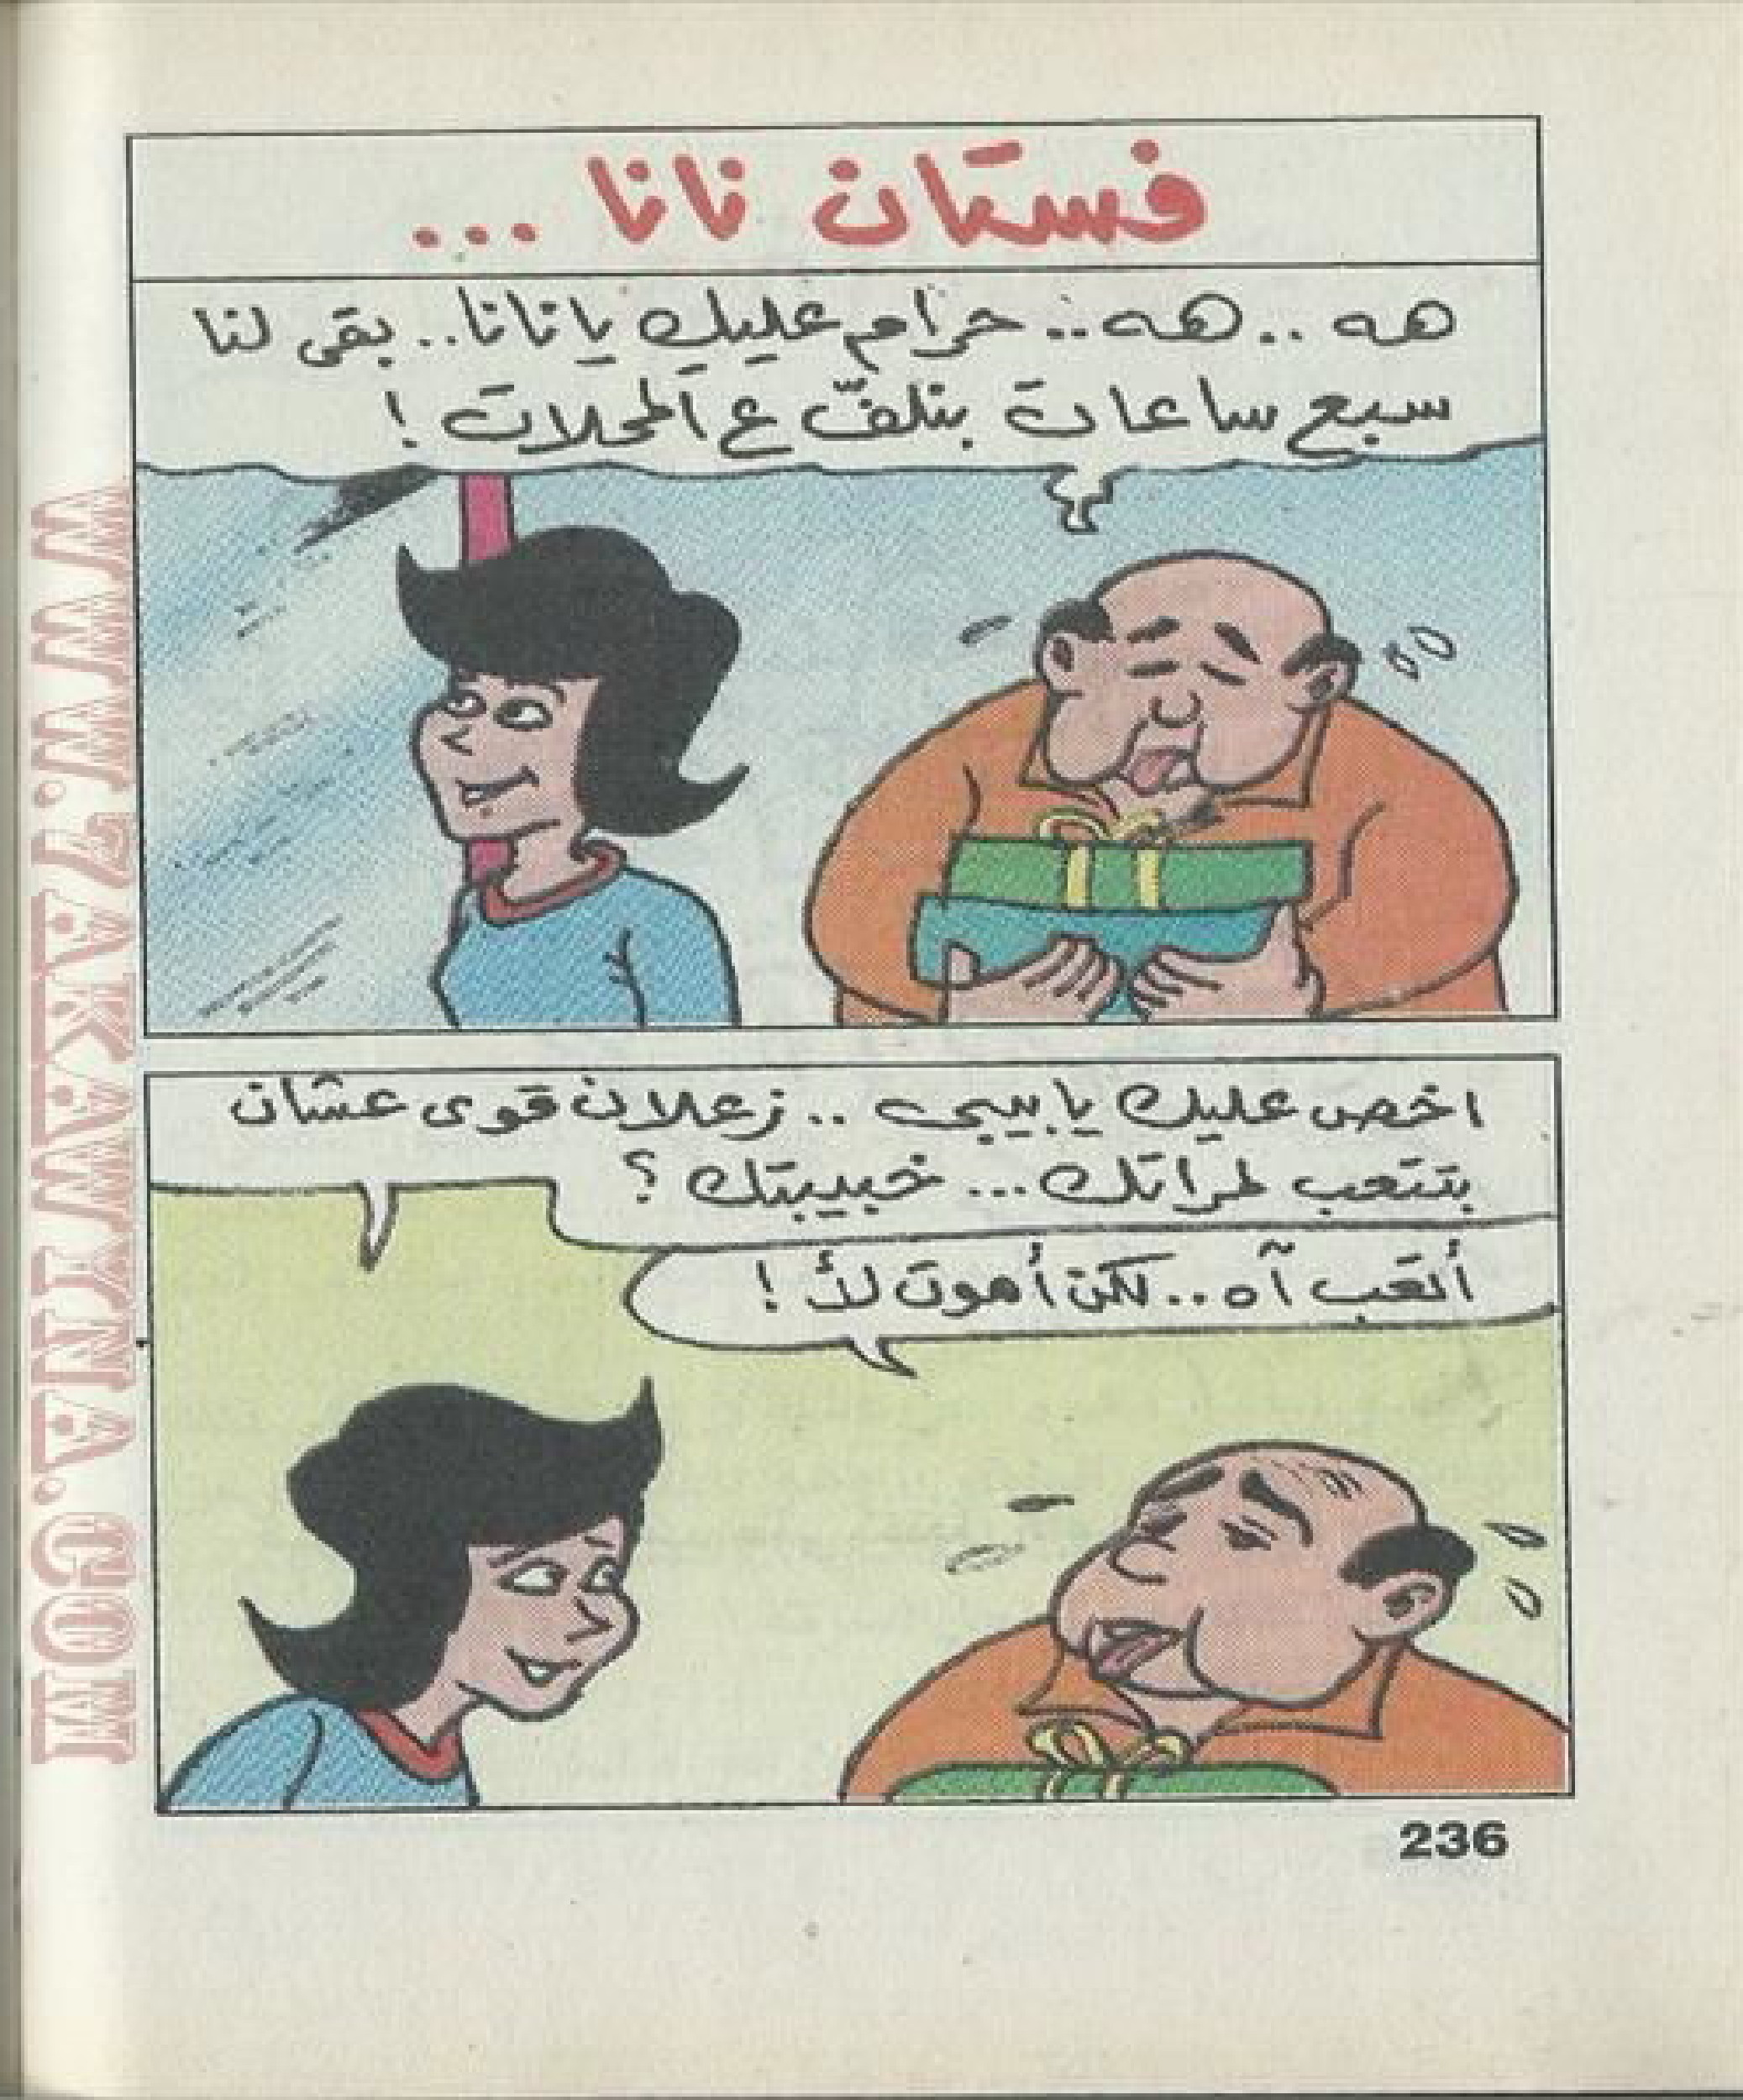 فستان نانا ...
هه .. هه .. حرام عليكِ يا نانا .. بقى لنا
سبع ساعات بنلفّ ع المحلات !
اخص عليك يا بيبى .. زعلان قوى عشان
بتتعب لمراتك ... خبيبتك ؟
أتعب آه .. لكن أموت لأ !
236
WWW.7AKAWTNA.COM